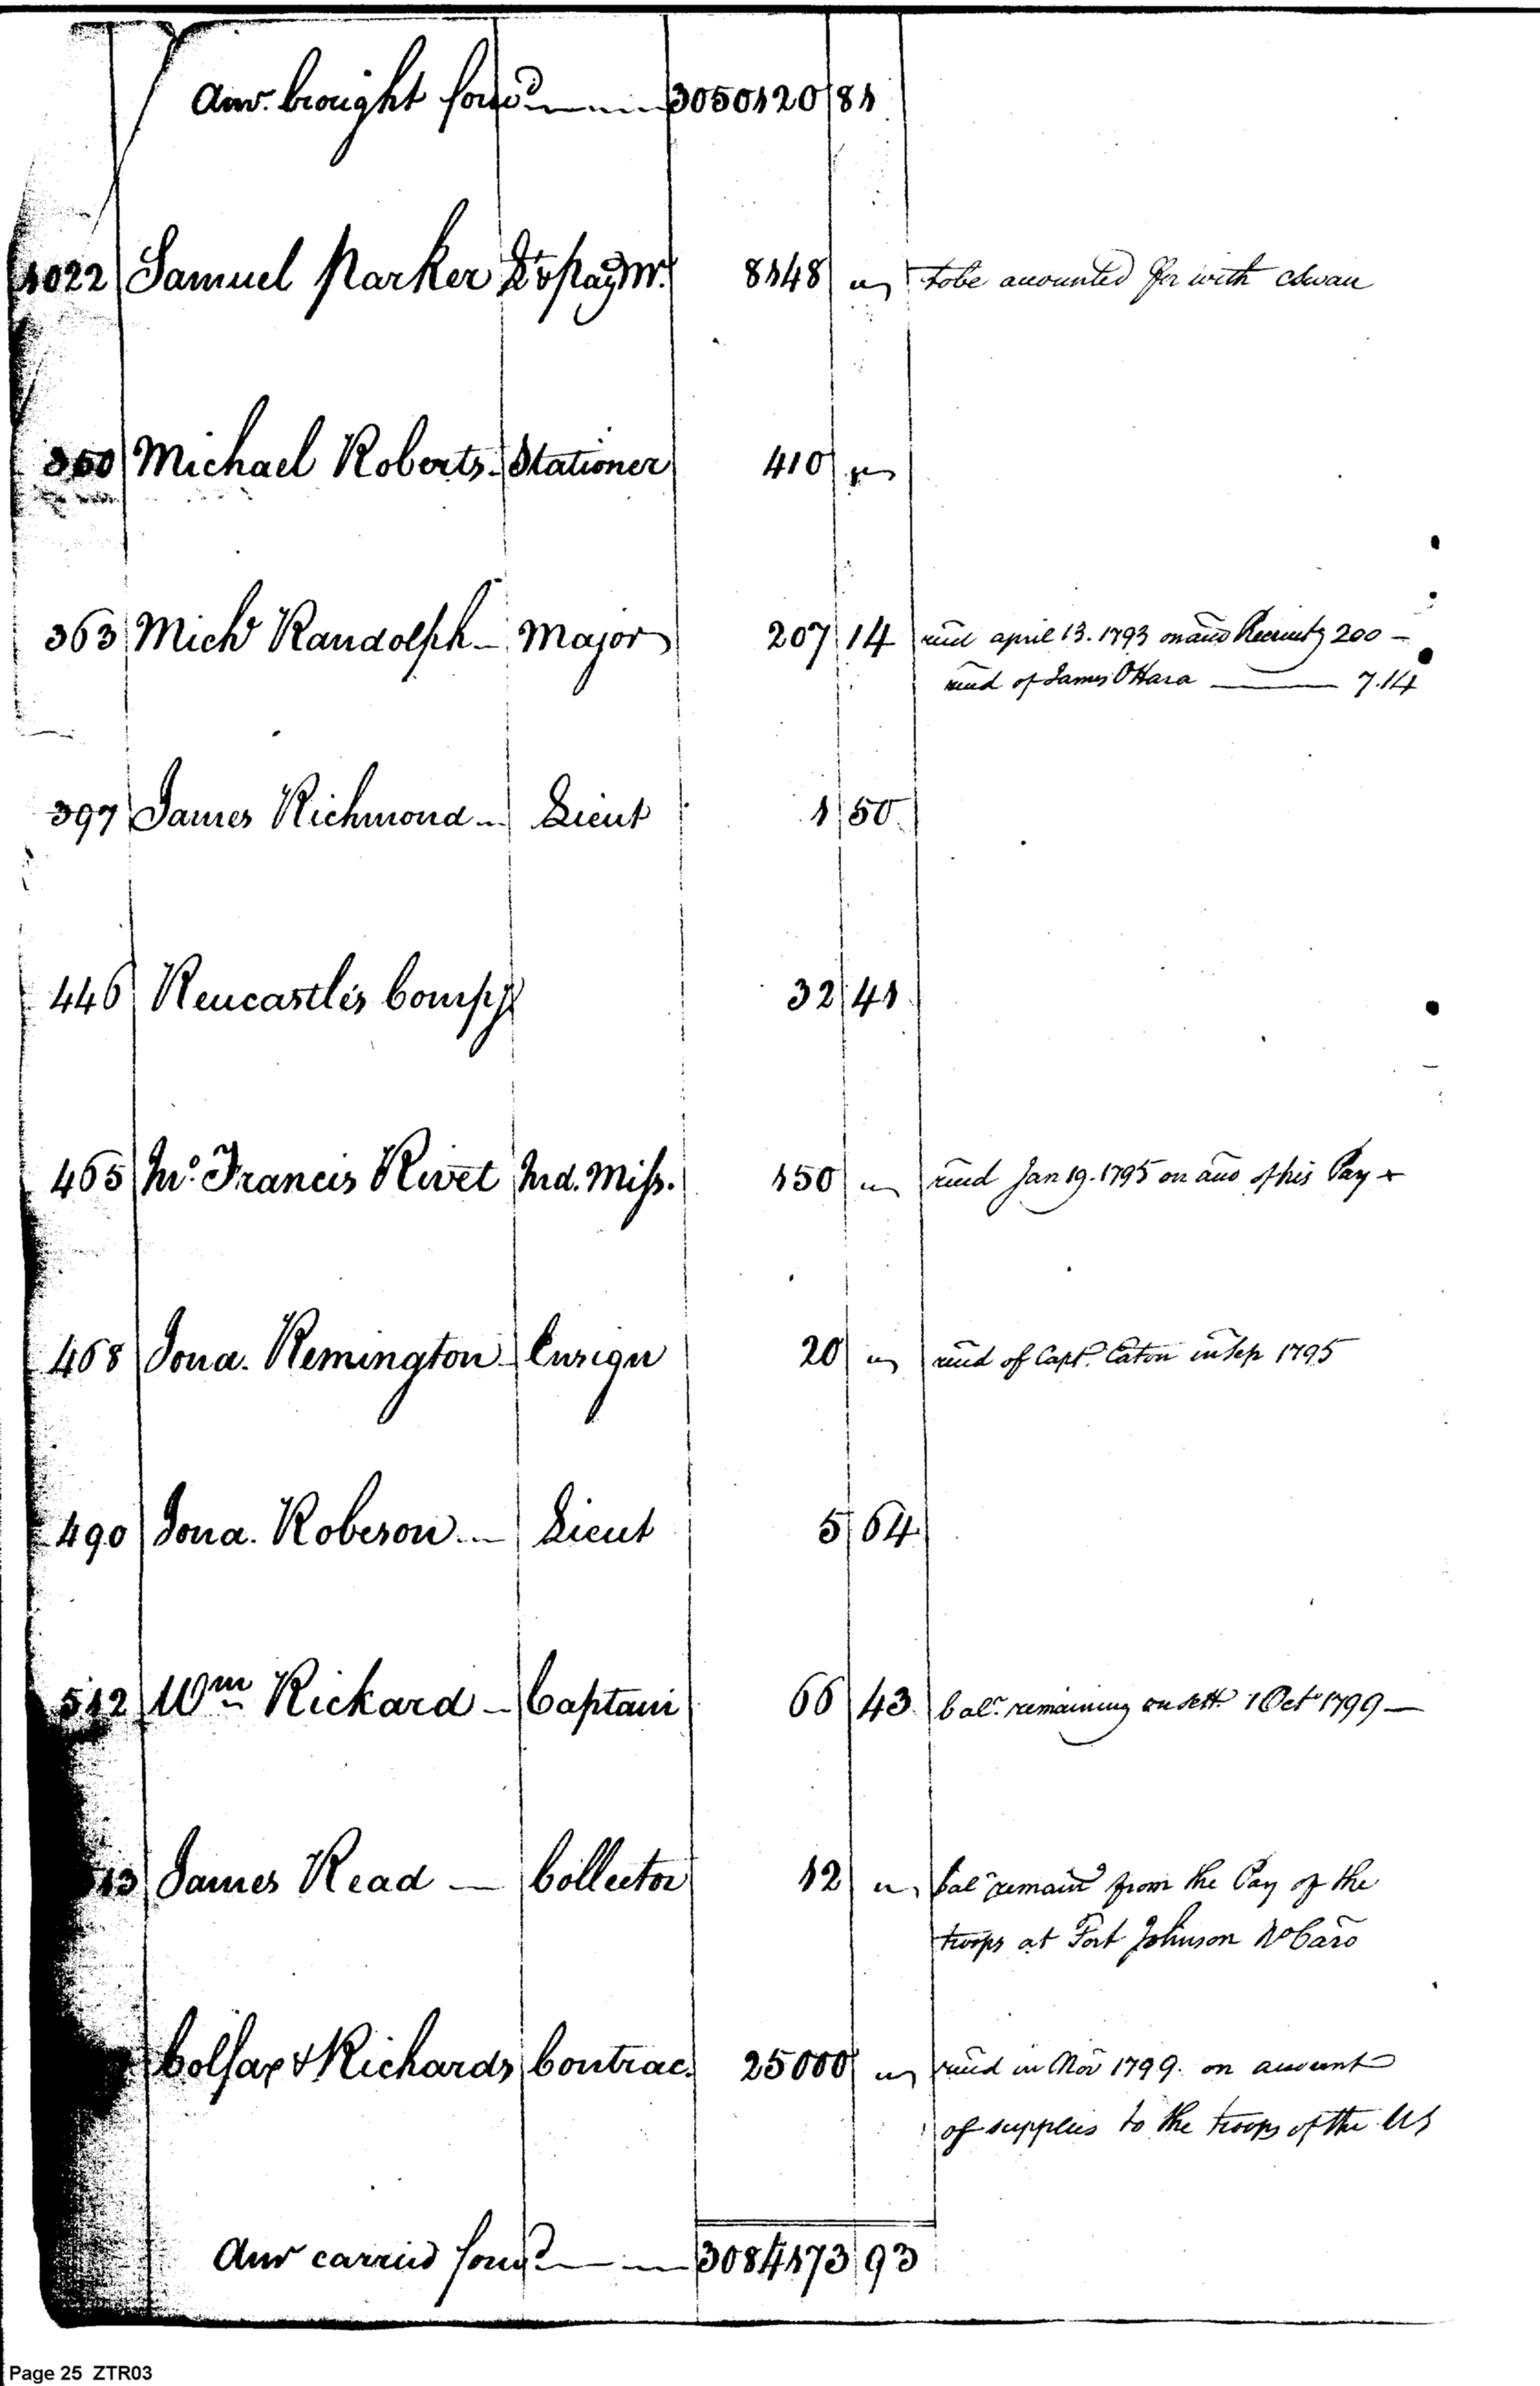 Amt. brought forwd 3050120 81
1022 Samuel Parker Dy PayMr. 8148 to be accounted for with Swan
350 Michael Roberts Stationer 410
363 Michl Randolph Major 207 14 recd april 13. 1793 on acco Recruitg 200
recd of James OHara 7.14
397 James Richmond Lieut 1 50
446 Reucastles Compy 32 41
465 Mr. Francis Rivet Ind. Miss. 150 recd Jan 19. 1795 on acco of his Pay
468 Jona. Remington Ensign 20 recd of Capt. Eaton in Sep 1795
490 Jona. Roberson Lieut 5 64
512 Wm Rickard Captain 66 43 bale. remaining on settt 1 Oct 1799
513 James Read Collector 12 bale remaind from the Pay of the
troops at Fort Johnson No Caro
Colfax & Richards Contrac. 25000 recd in Nov 1799. on account
of supplies to the troops of the US
Amt carried forwd 3084173 93
Page 25 ZTR03